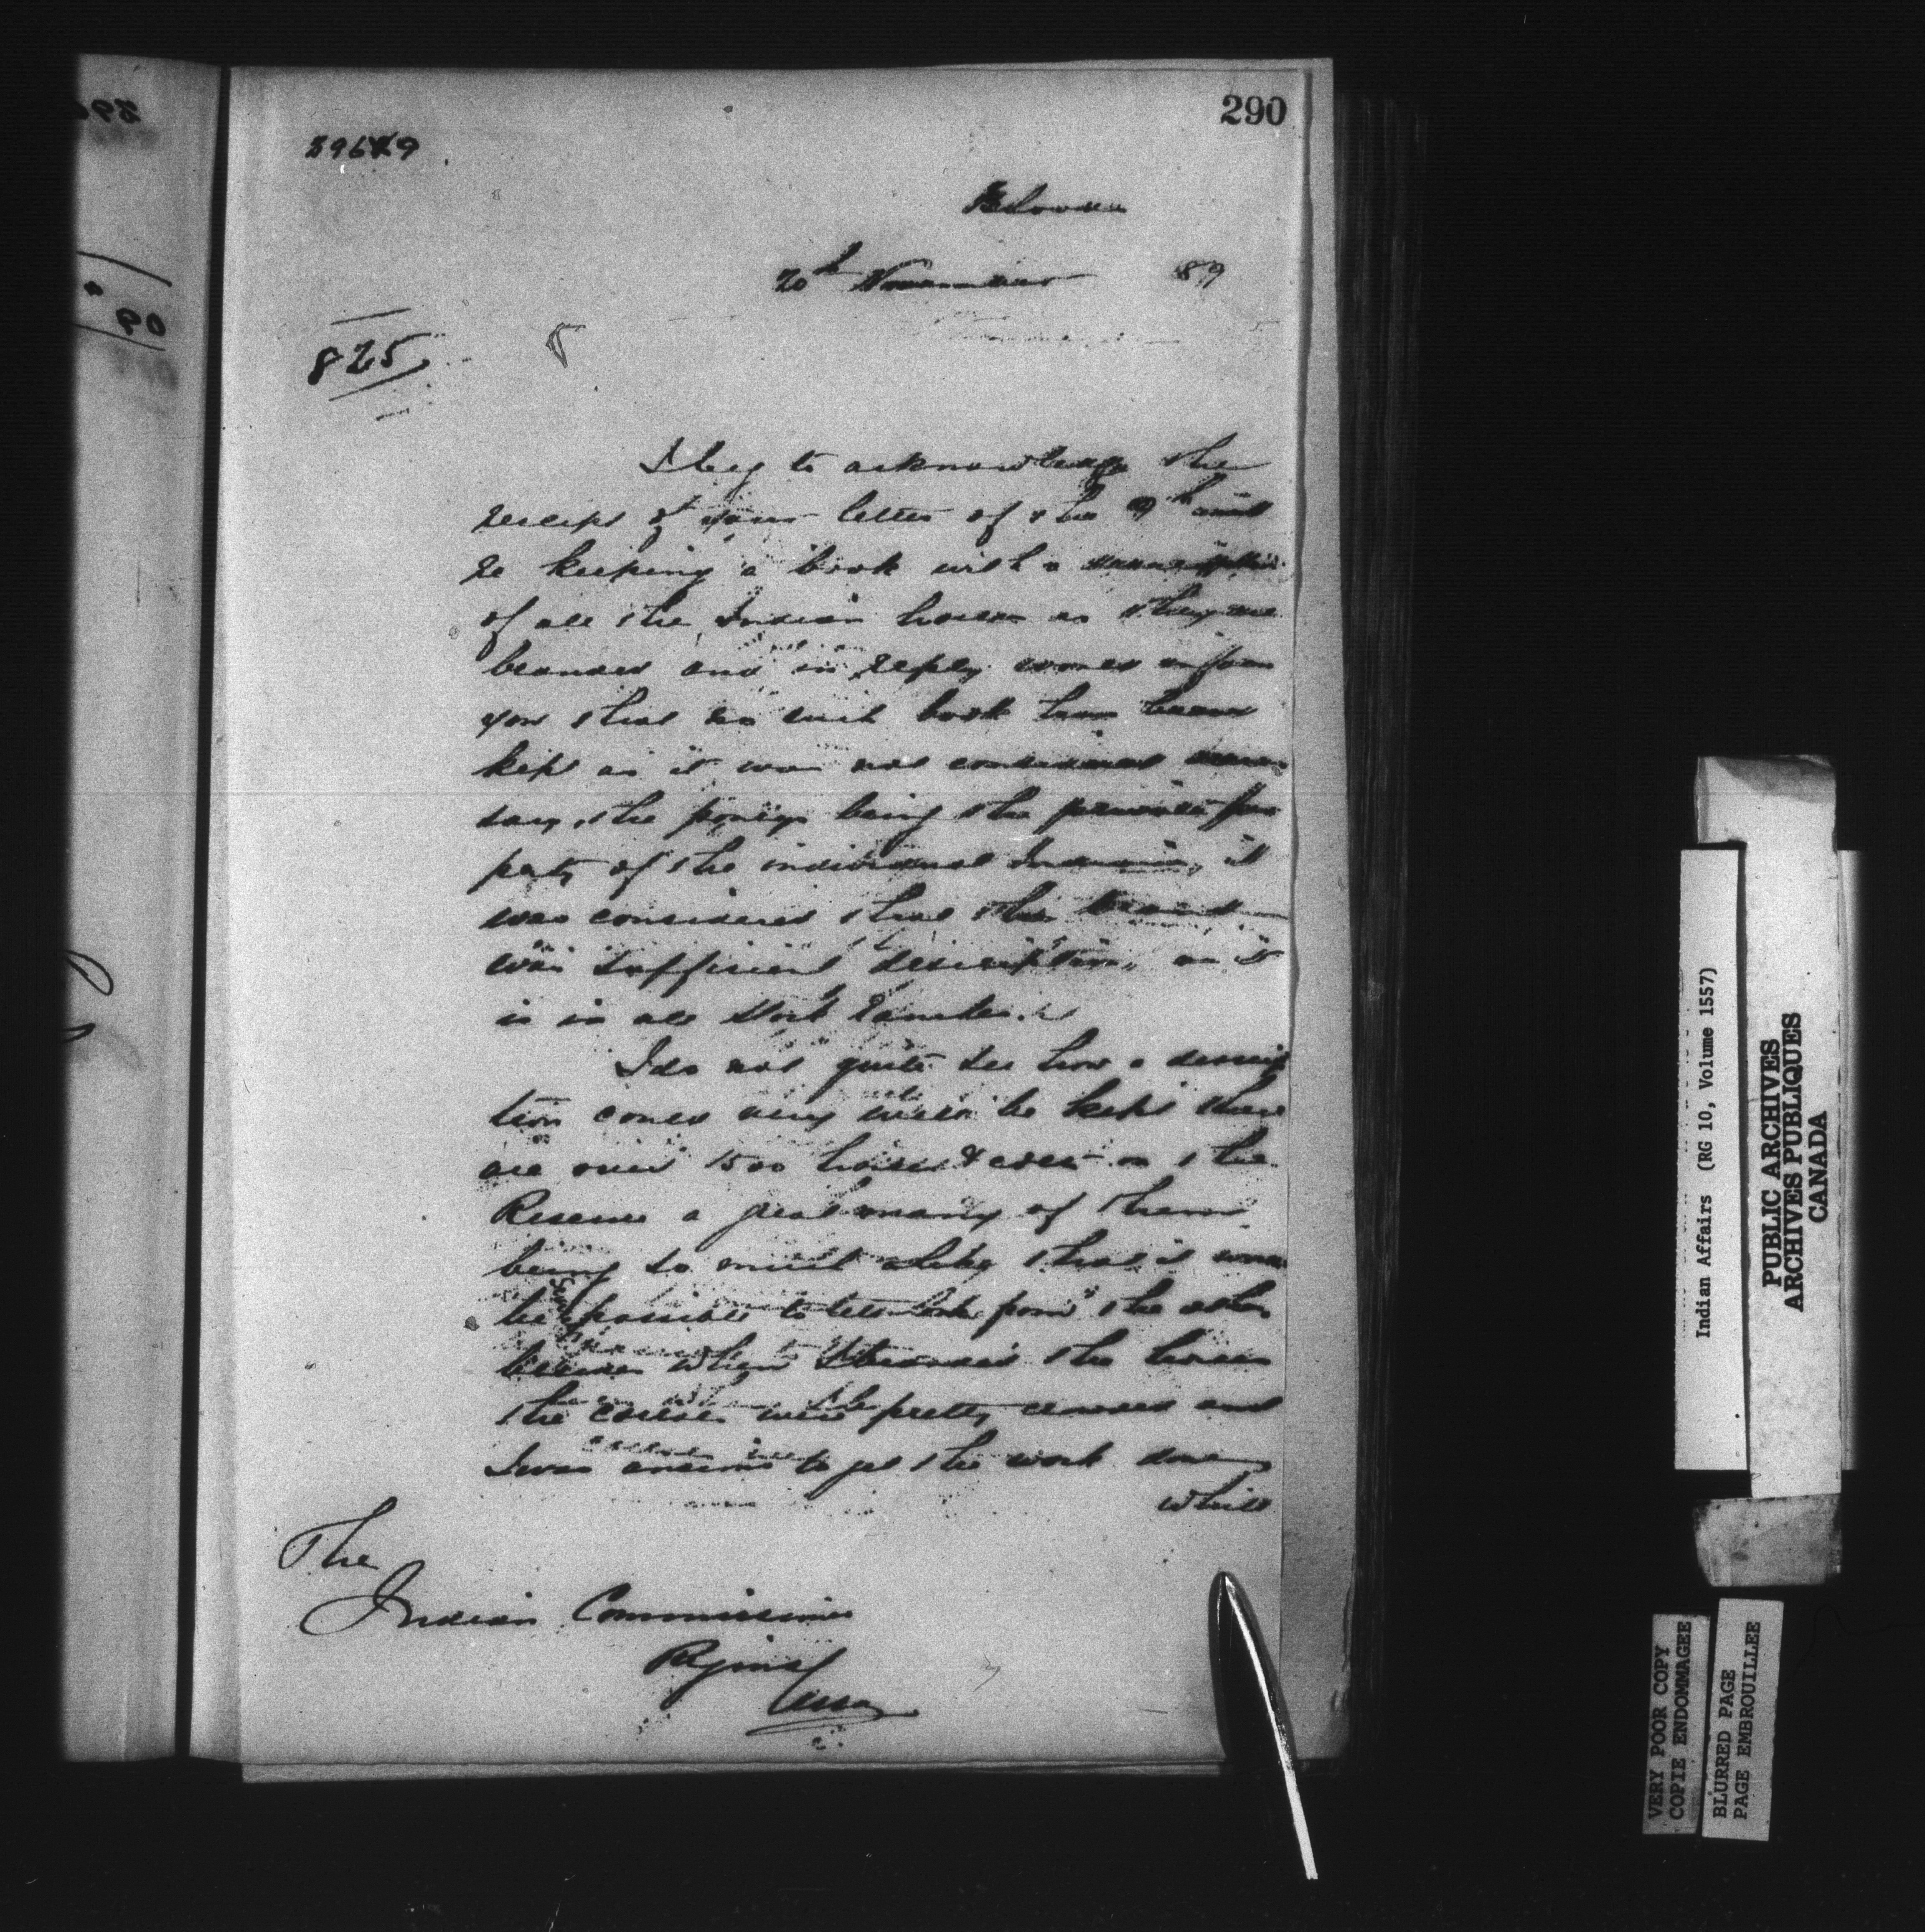 290
29649
20th November 89
825
I beg to acknowledge the
receipt of your letter of the 9th inst
re keeping a book with a description
of all the Indian horses as they are
branded and in reply would inform
you that no such book has been
kept as it was not considered neces
sary, the ponys being the private pro
perty of the individual Indians, it
was considered that the brand
was sufficient description, as it
is in all Stock Ranches.
I do not quite see how a descrip
tion could very well be kept there
are over 1500 horses & colts on the
Reserve a great many of them
being so much alike that it would
be impossible to tell one from the other
besides when I branded the horses
the corrals were pretty crowded and
I was anxious to get the work done
while
The
Indian Commissioner
Regina
Assa
Indian Affairs (RG 10, Volume 1557)
PUBLIC ARCHIVES
ARCHIVES PUBLIQUES
CANADA
VERY POOR COPY
COPIE ENDOMMAGEE
BLURRED PAGE
PAGE EMBROUILLEE